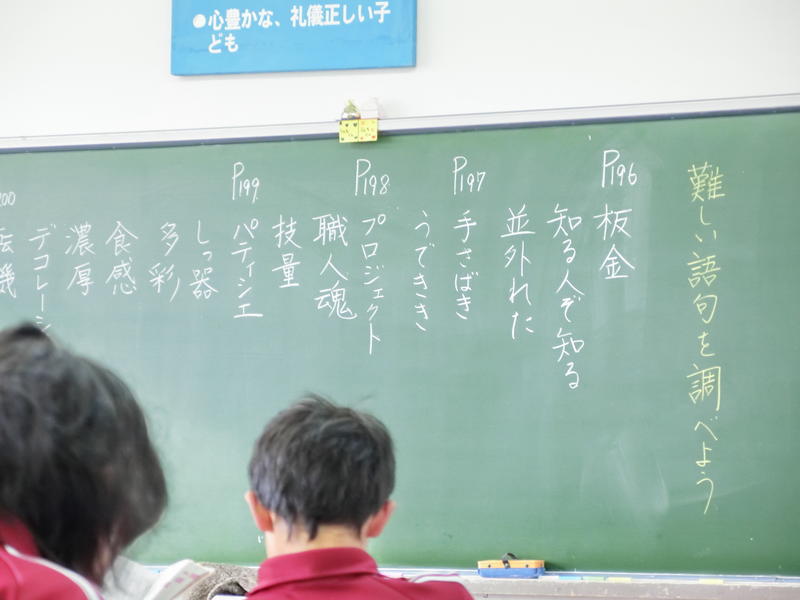 ●心豊かな、礼儀正しい子
ども
難しい語句を調べよう
P196
板金
知る人ぞ知る
並外れた
P197
手さばき
うできき
P198
プロジェクト
職人魂
技量
P199
パティシエ
しっ器
多彩
食感
濃厚
デコレーシ